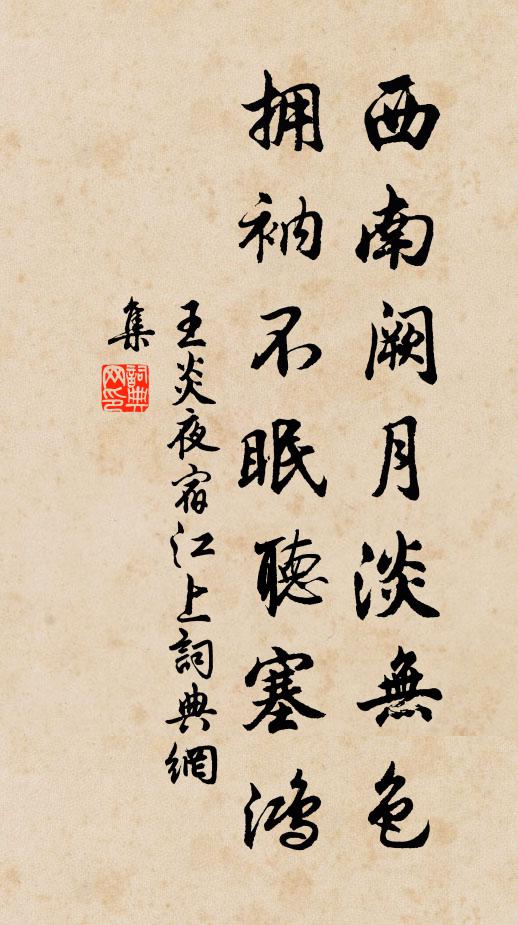 西南阙月淡無色
拥衲不眠聽塞鸿
王炎夜宿江上詞典網
集
詞典
网印